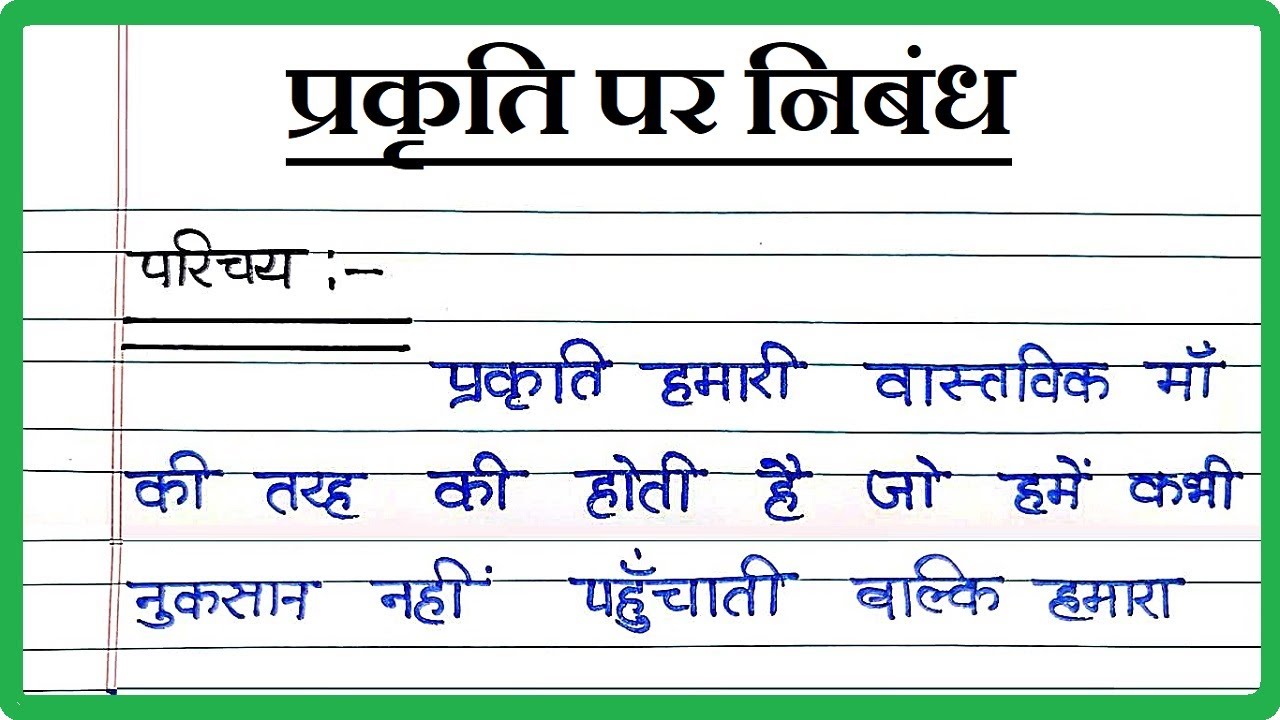 प्रकृति पर निबंध
परिचय :-
प्रकृति हमारी वास्तविक माँ
की तरह की होती है जो हमें कभी
नुकसान नहीं पहुँचाती बल्कि हमारा